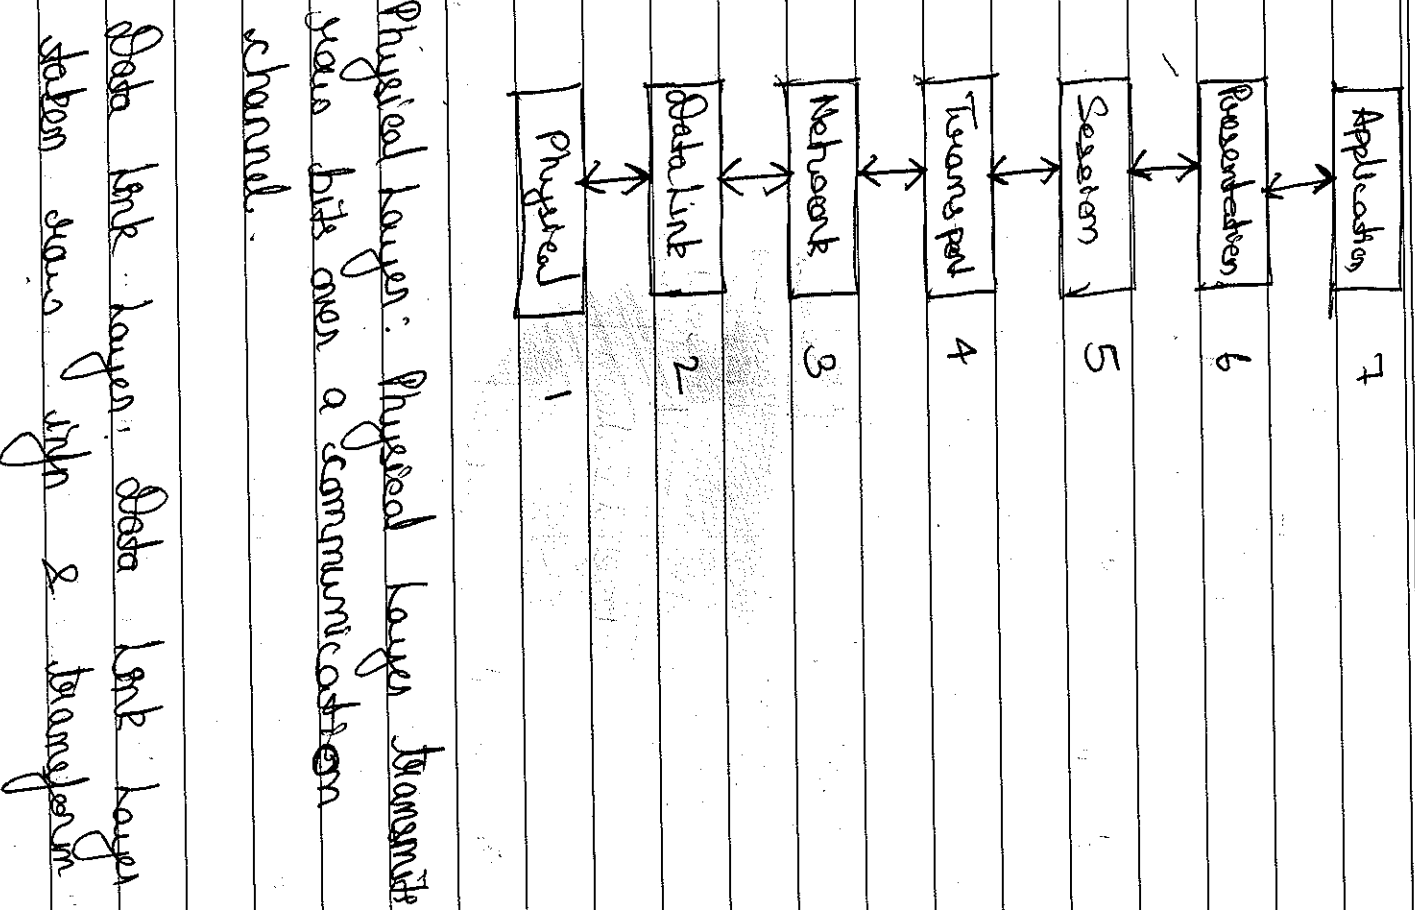 Application 7
Presentation 6
Session 5
Transport 4
Network 3
Data Link 2
Physical 1
Physical Layer: Physical Layer transmits
raw bits over a communication
channel.
Data Link Layer: Data Link Layer
taken raw infn & transform